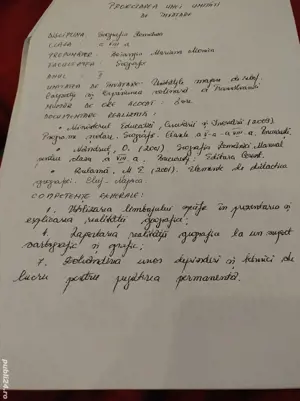 PROIECTAREA UNEI UNITĂȚI
DE ÎNVĂȚARE
DISCIPLINA: Geografia României
CLASA: a VIII a
PROPUNĂTOR: Mariana
FACULTATEA: Geografie
ANUL: I
UNITATEA DE ÎNVĂȚARE: Unitățile majore de relief.
Carpații și Depresiunea colinară a Transilvaniei
NUMĂR DE ORE ALOCAT: 8 ore
DOCUMENTARE REALISTĂ:
• Ministerul Educației, Cercetării și Inovării (2009).
Programe școlare. Geografie. Clasele a V-a - a VIII-a, București
• Mândruț, O. (2001) Geografia României Manual
pentru clasa a VIII a, București: Editura Corint.
• Dulamă, M. E. (2001). Elemente de didactica
geografiei. Cluj-Napoca
COMPETENȚE GENERALE:
1. Utilizarea limbajului specific în prezentarea și
explicarea realității geografice;
4. Raportarea realității geografice la un suport
cartografic și grafic;
7. Dobândirea unor deprinderi și tehnici de
lucru pentru pregătirea permanentă.
publi24.ro